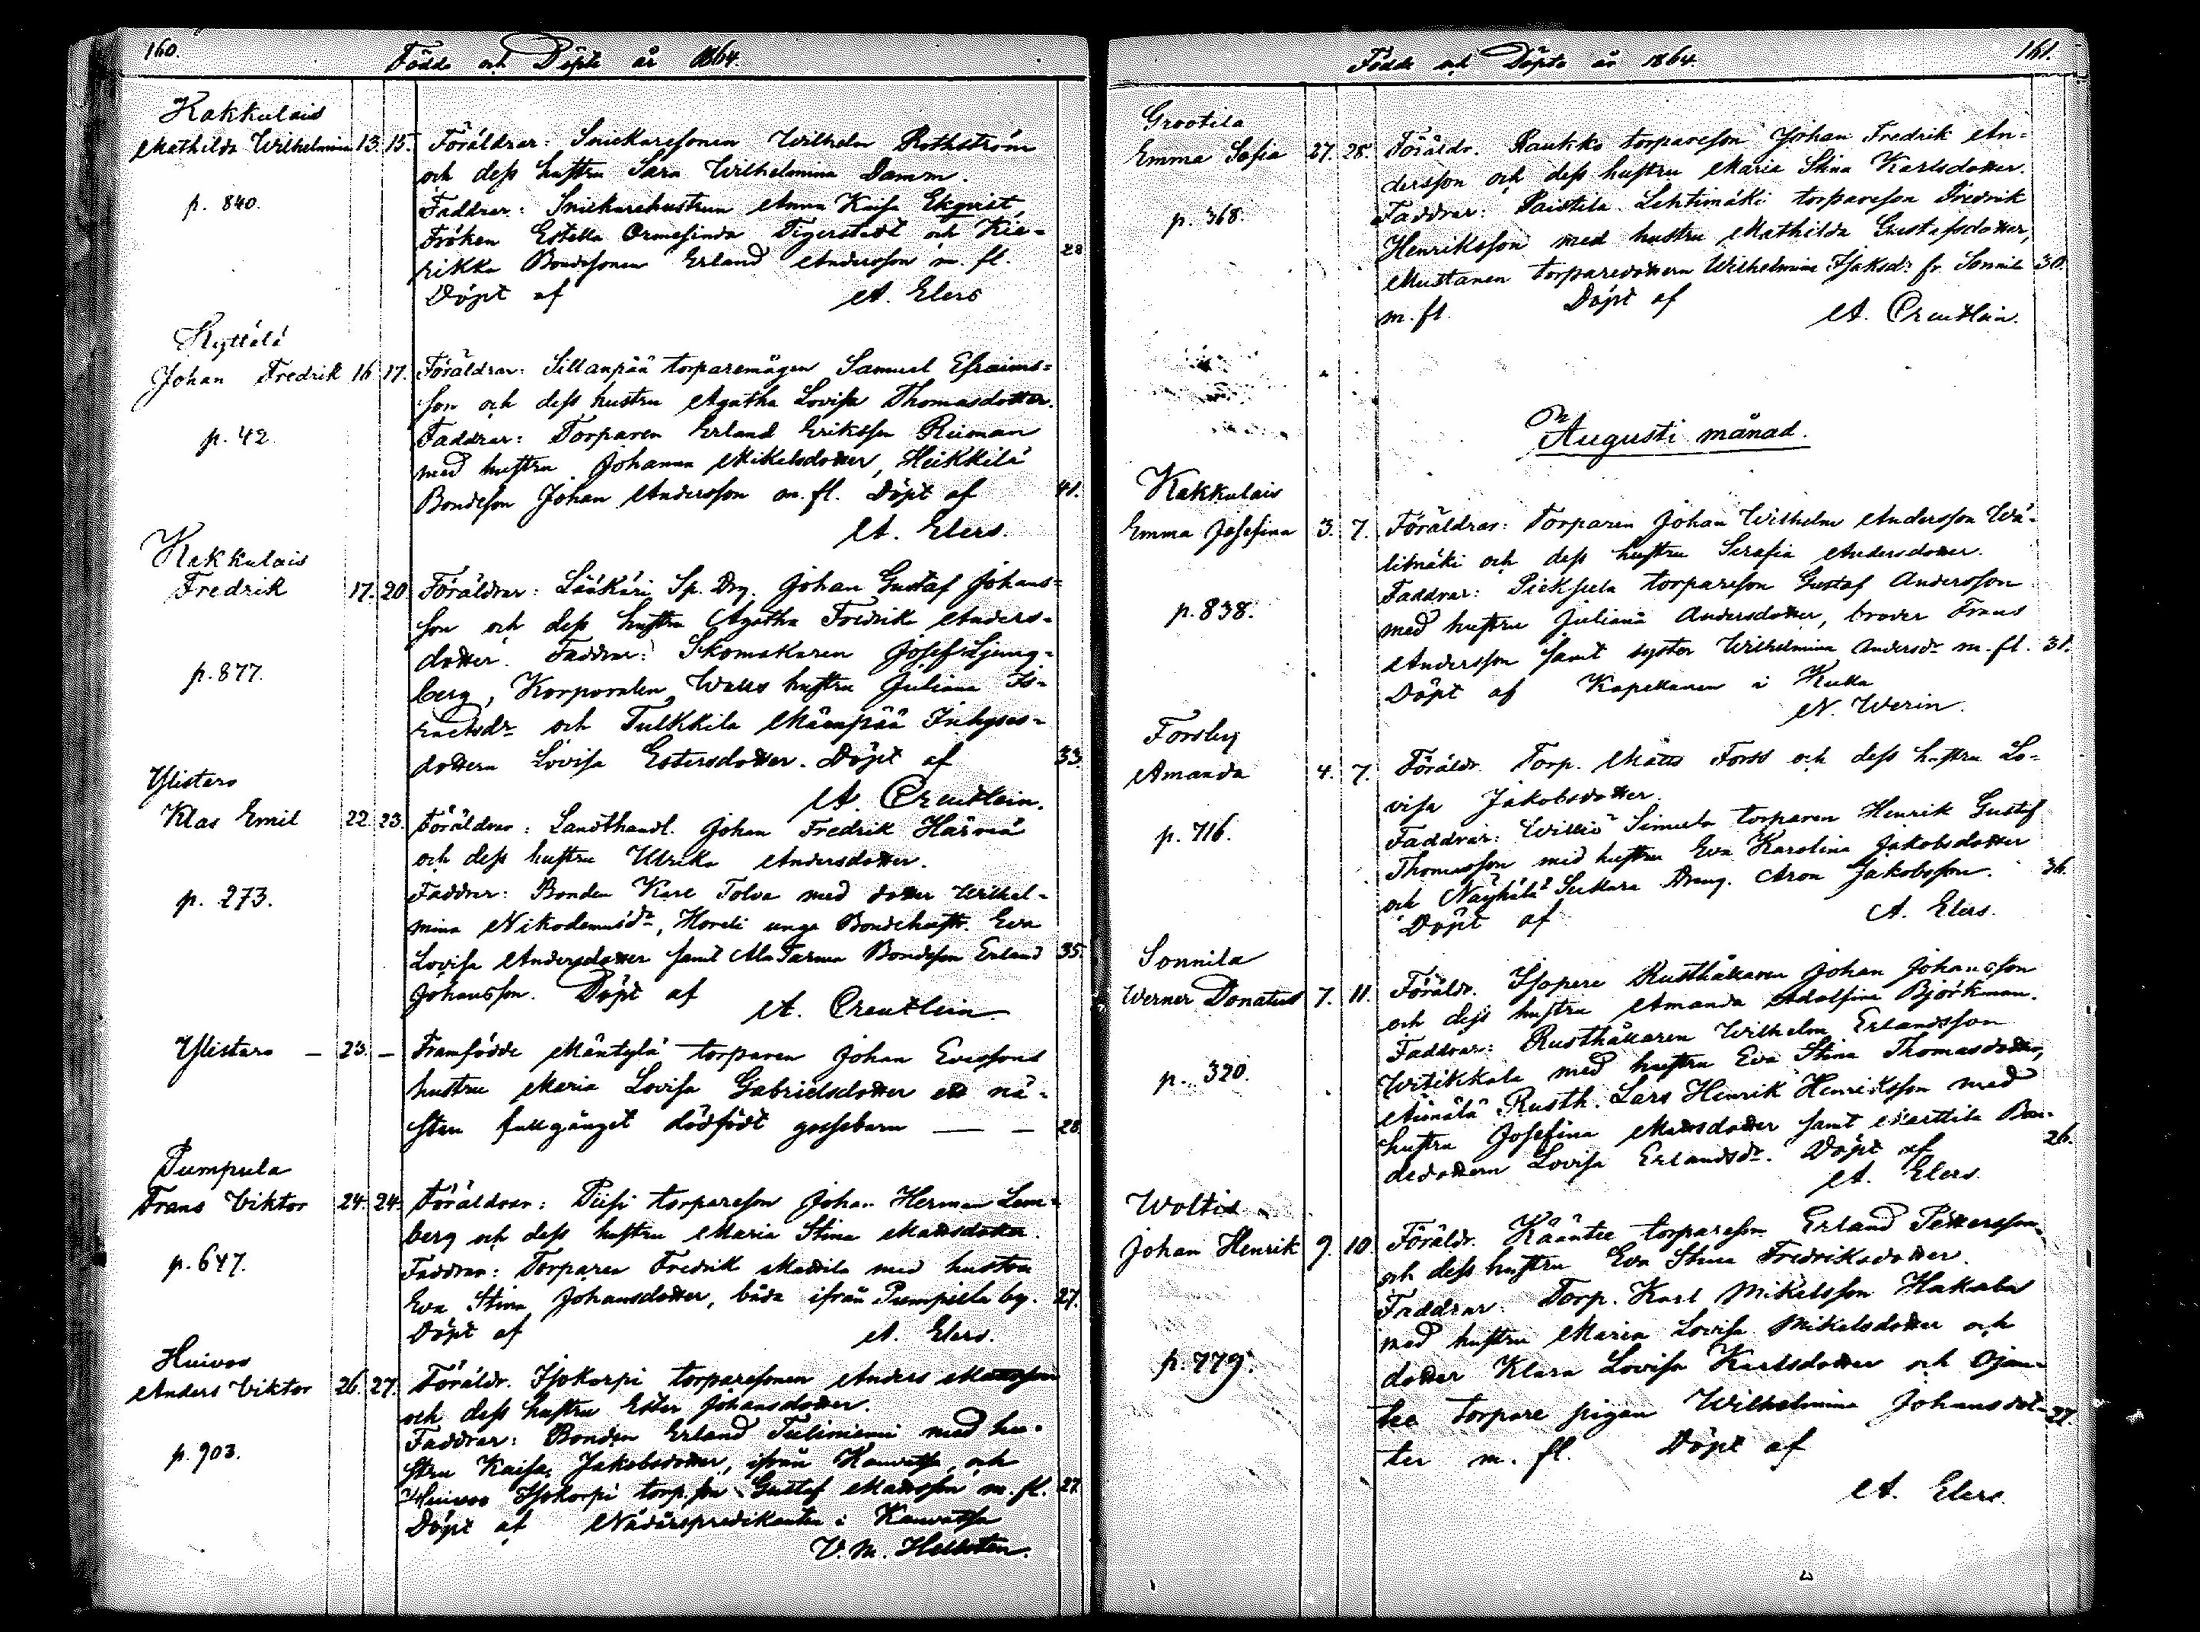 160.
Födde och Döpte år 1864.
Kakkulais
Mathilda Wilhelmina 13. 15. Föräldrar: Snickaresonen Wilhelm Rothström
och dess hustru Sara Wilhelmina Damm.
p. 840.
Faddrar: Snickarehustrun Anna Kaisa Ekqvist,
Fröken Estella Ormesinda Tigerstedt och Kie-
rikka Bondesonen Erland Andersson m. fl. 28
Döpt af A. Elers
Kyttälä
Johan Fredrik 16 17. Föräldrar: Sillanpää torparemågen Samuel Efraims-
son och dess hustru Agatha Lovisa Thomasdotter.
p. 42
Faddrar: Torparen Erland Eriksson Reiman
med hustru Johanna Mikelsdotter, Heikkilä
Bondeson Johan Andersson m. fl. Döpt af 41.
A. Elers.
Kakkulais
Fredrik 17. 20 Föräldrar: Lääkäri Sp. Drg. Johan Gustaf Johans-
son och dess hustru Agatha Fredrika Anders-
dotter. Faddrar: Skomakaren Josef Ljung-
p. 877.
berg, Korporalen Walls hustru Juliana Is-
raelsdr och Tulkkila Mäenpää Inhyses-
dottern Lovisa Estersdotter. Döpt af 33.
A. Creutlein.
Ylistaro
Klas Emil 22. 23. Föräldrar: Landthandl. Johan Fredrik Härmä
och dess hustru Ulrika Andersdotter.
p. 273.
Faddrar: Bonden Karl Tolsa med dotter Wilhel-
mina Nikodemusdr, Horeli unga Bondehustr. Eva
Lovisa Andersdotter samt Ala Tarma Bondeson Erland 35.
Johansson. Döpt af A. Creutlein.
Ylistaro — 23. — Framfödde Mäntylä torparen Johan Evertssons
hustru Maria Lovisa Gabrielsdotter ett nä-
sten fullgånget dödfödt gossebarn — — 28
Pumpula
Frans Viktor 24. 24. Föräldrar: Piesi torpareson Johan Herman Lem-
berg och dess hustru Maria Stina Mattsdotter.
p. 647.
Faddrar: Torparen Fredrik Mattila med hustru
Eva Stina Johansdotter, båda ifrån Pumpula by. 27.
Döpt af A. Elers.
Huivoo
Anders Viktor 26. 27. Föräldr. Isokorpi torparesonen Anders Mattsson
och dess hustru Ester Johansdotter.
p. 903.
Faddrar: Bonden Erland Tuliniemi med hu-
stru Kaisa Jakobsdotter, ifrån Kauvatsa, och
Huivoo Isokorpi torp. son Gustaf Mattsson m. fl. 27.
Döpt af Nådårspredikanten i Kauvatsa
V. M. Hellsten.
161.
Födde och Döpte år 1864.
Grootila
Emma Sofia 27. 28. Föräldr. Raukko torpareson Johan Fredrik An-
dersson och dess hustru Maria Stina Karlsdotter.
p. 368.
Faddrar: Paistila Lehtimäki torpareson Fredrik
Henriksson med hustru Mathilda Gustafsdotter,
Mustanen torparedottern Wilhelmina Isaksdr fr. Sonnila 30.
m. fl. Döpt af A. Creutlein.
Augusti månad.
Kakkulais
Emma Josefina 3. 7. Föräldrar: Torparen Johan Wilhelm Andersson Wä-
limäki och dess hustru Serafia Andersdotter.
p. 838.
Faddrar: Pieksula torpareson Gustaf Andersson
med hustru Juliana Andersdotter, broder Frans
Andersson samt syster Wilhelmina Andersdr m. fl. 31.
Döpt af Kapellanen i Kulla
N. Werin.
Forsby
Amanda 4. 7. Föräldr. Torp. Matts Forss och dess hustru Lo-
visa Jakobsdotter.
p. 716.
Faddrar: Williö Simula torparen Henrik Gustaf
Thomasson med hustru Eva Karolina Jakobsdotter
och Näyhälä Sukkara Dräng. Aron Jakobsson. 36.
Döpt af A. Elers.
Sonnila
Werner Donatus 7. 11. Föräldr. Isopere Rusthållaren Johan Johansson
och dess hustru Amanda Adolfina Björkman.
p. 320.
Faddrar: Rusthållaren Wilhelm Erlandsson
Witikkala med hustru Eva Stina Thomasdotter,
Äimälä Rusth. Lars Henrik Henriksson med
hustru Josefina Mattsdotter samt Marttila Bon-
dedottern Lovisa Erlandsdr. Döpt af 26.
A. Elers.
Woltis
Johan Henrik 9. 10. Föräldr. Kääntee torpareson Erland Pettersson
och dess hustru Eva Stina Fredriksdotter.
p. 779.
Faddrar: Torp. Karl Mikelsson Hakala
med hustru Maria Lovisa Mikelsdotter och
dotter Klara Lovisa Karlsdotter och Ojan-
torpare pigan Wilhelmina Johansdot- 27.
ter m. fl. Döpt af
A. Elers.